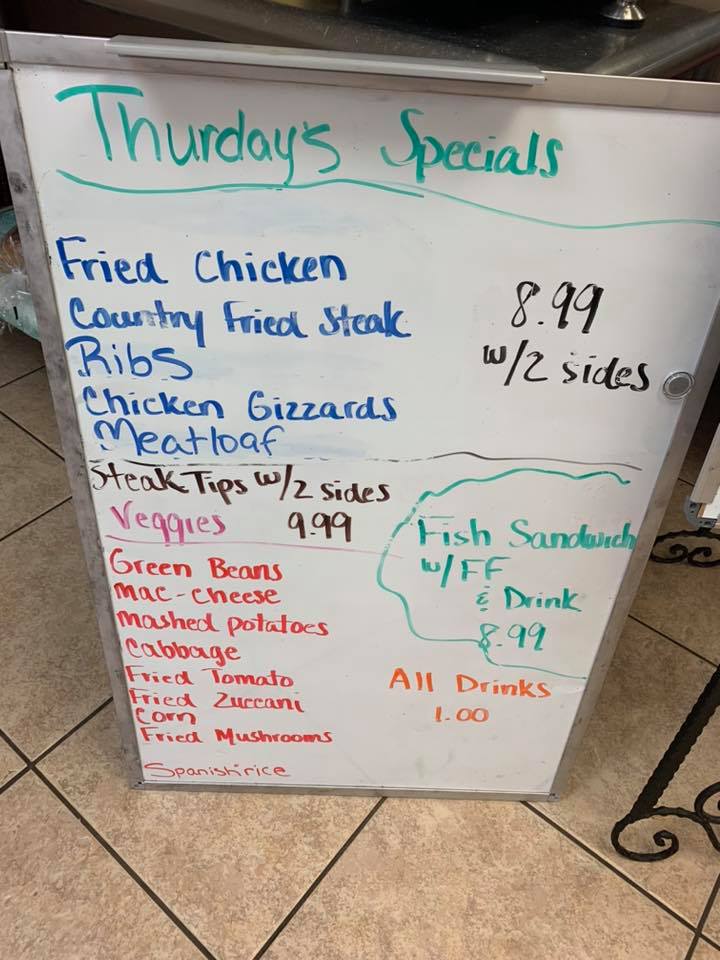 Thurday's Specials
Fried Chicken
Country Fried Steak
Ribs
Chicken Gizzards
Meatloaf
8.99
w/2 sides
Steak Tips w/2 sides
9.99
Veggies
Green Beans
Mac-cheese
Mashed potatoes
Cabbage
Fried Tomato
Fried Zuccani
Corn
Fried Mushrooms
Spanish rice
Fish Sandwich
w/FF
& Drink
8.99
All Drinks
1.00